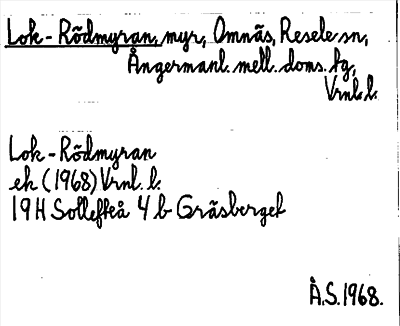 Lok-Rödmyran, myr, Omnäs, Resele sn,
Ångermanl. mell. doms. tg,
Vrnl. l.
Lok-Rödmyran
ek (1968) Vrnl. l.
19H Sollefteå 4 b Gräsberget
Å.S. 1968.